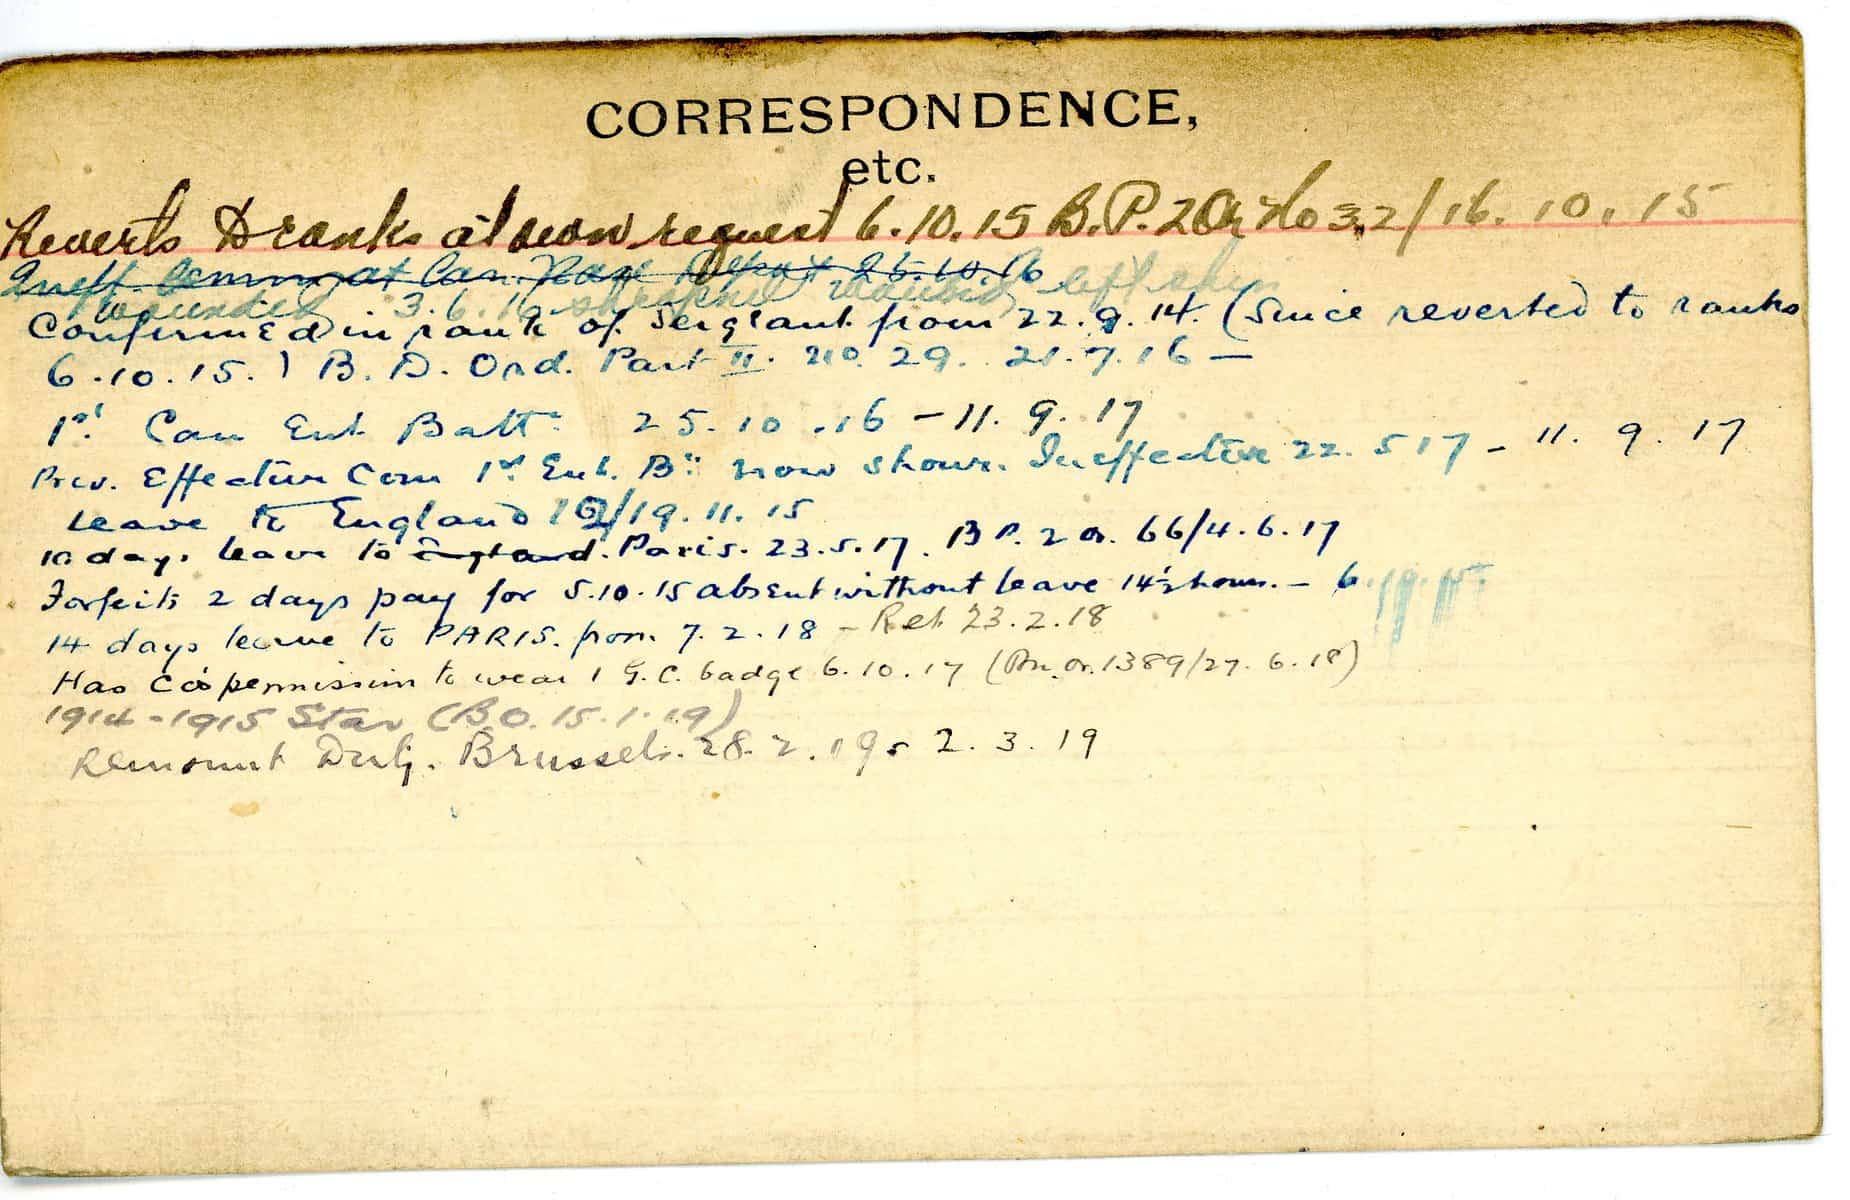 CORRESPONDENCE,
etc.
Reverts to ranks at own request 6.10.15 B.P.2 Or No 32/16.10.15
at Can. Base Depot 25.10.16
wounded 3.6.16 shrapnel wound left
Confirmed in rank of Sergeant from 22.9.14. (Since reverted to ranks
6.10.15.) B.D. Ord. Part II. No. 29. 21.7.16 —
1st Can Ent Battn 25.10.16 - 11.9.17
Prev. Effective Com 1st Ent. Bn now shown Ineffective 22.5 17 - 11.9.17
Leave to England /19.11.15
10 days leave to England. Paris. 23.5.17. B P. 2 Or. 66/4.6.17
Forfeits 2 days pay for 5.10.15 absent without leave 14½ hours. - 6
14 days leave to PARIS. from 7.2.18 - Ret 23.2.18
Has Co's permission to wear 1 G.C. badge 6.10.17 (Bn. Or. 1389/27.6.18)
1914-1915 Star (B.O. 15.1.19)
Remount Duty. Brussels. 28.2.19 - 2.3.19